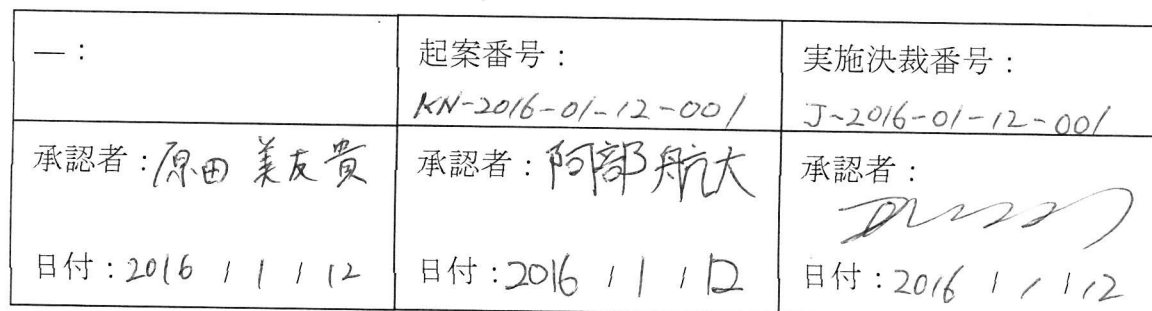 —:
起案番号:
KN-2016-01-12-001
実施決裁番号:
J-2016-01-12-001
承認者:原田 美友貴
日付:2016 / 1 / 12
承認者:阿部 航大
日付:2016 / 1 / 12
承認者:
日付:2016 / 1 / 12